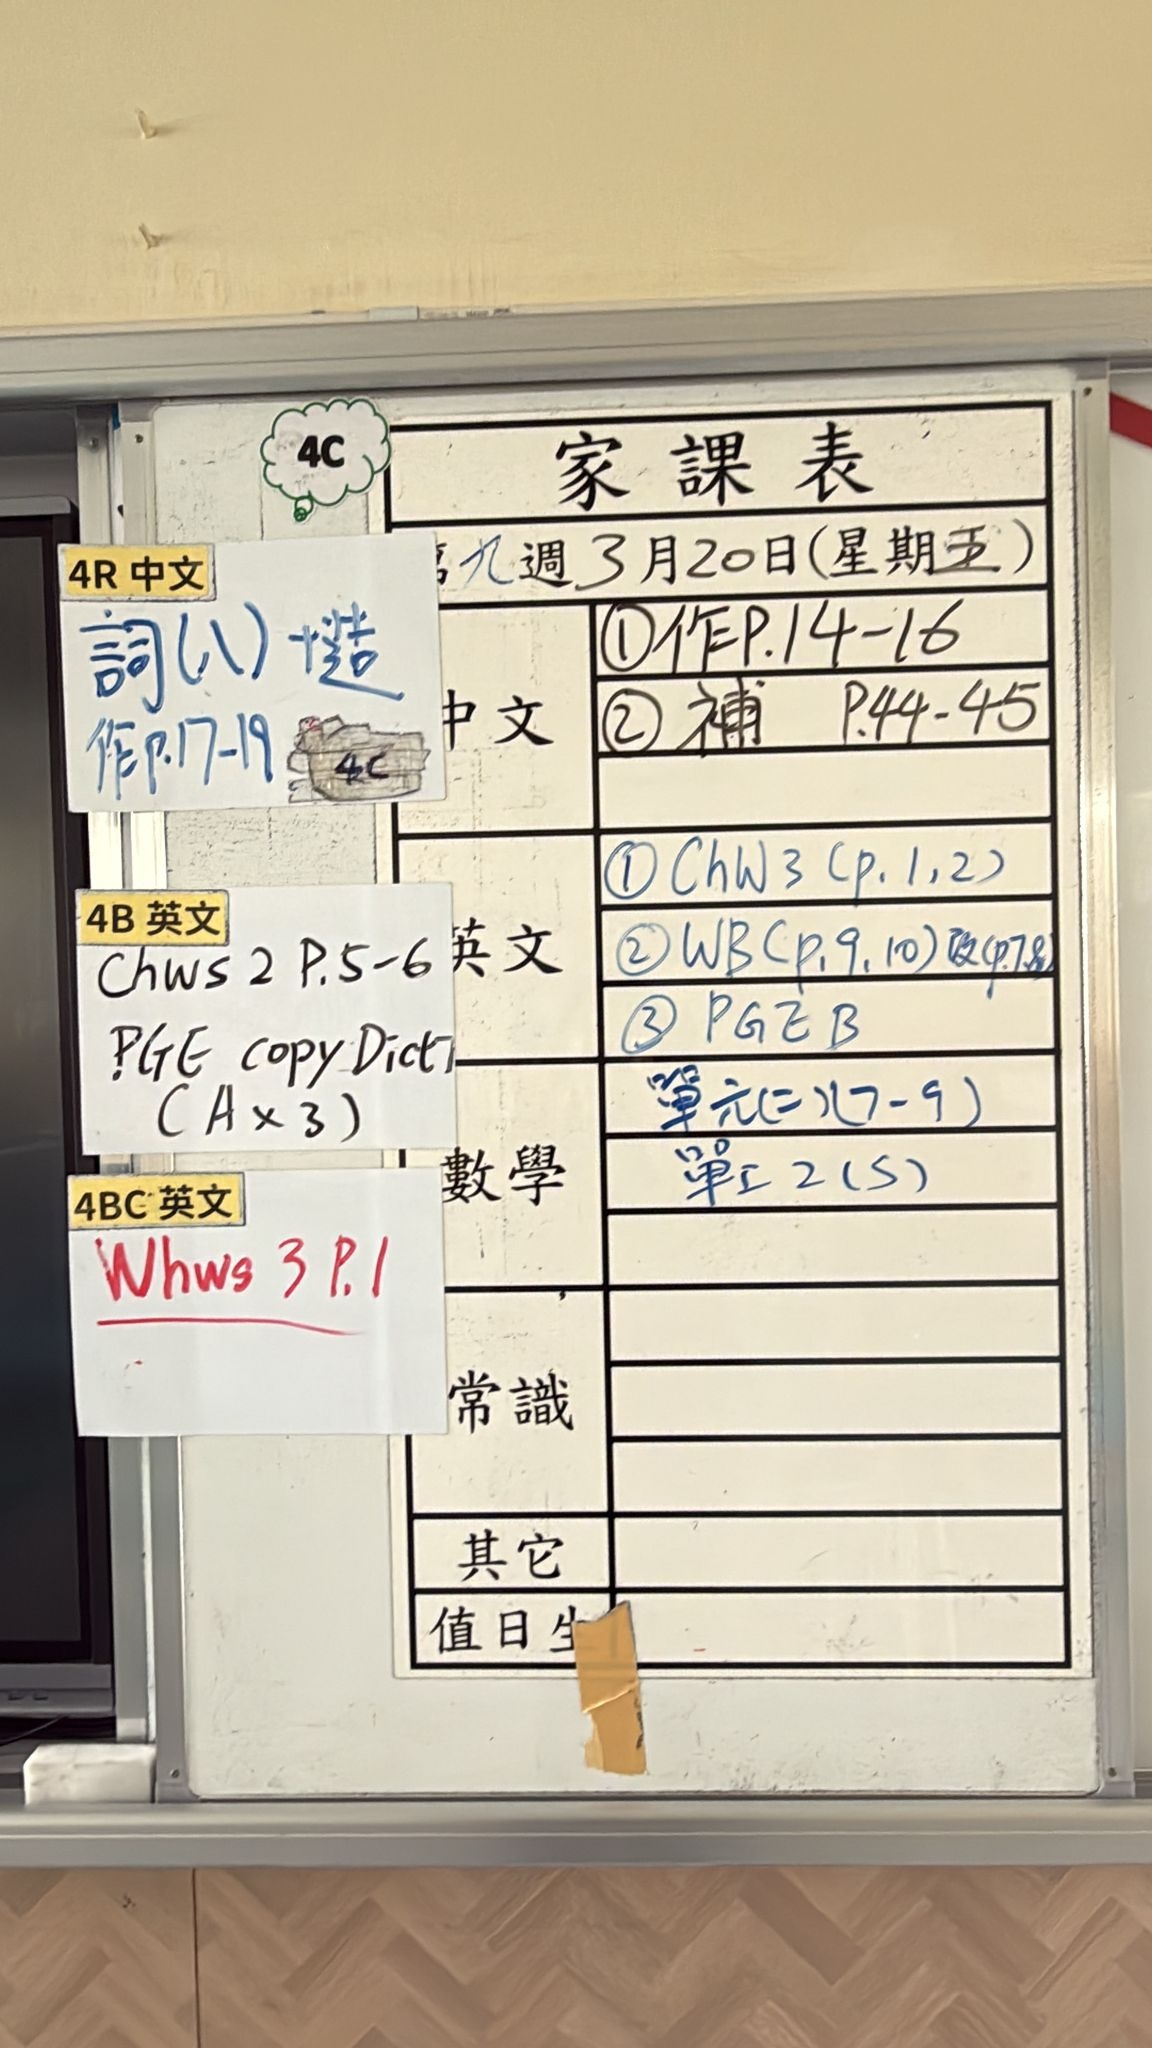 4C
家課表
第九週 3月20日(星期五)
4R 中文
詞(八)+造
作P.17-19
4C
中文
①作P.14-16
②補 P.44-45
英文
①ChW3 (p.1,2)
②WB(p.9,10)改(p.7,8)
③PGEB
4B 英文
Chws 2 P.5-6
PGE copy Dict
(A×3)
4BC 英文
Whws 3 P.1
數學
單元(二)(7-9)
單工2(5)
常識
其它
值日生